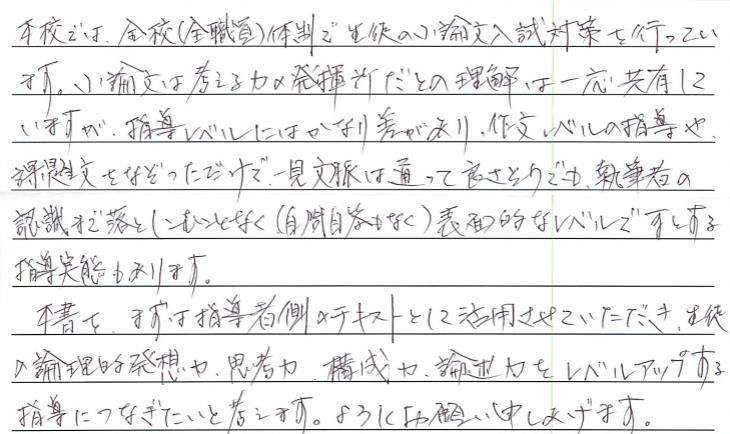 本校では、全校(全職員)体制で生徒の小論文入試対策を行ってい
ます。小論文は考える力の発揮所だとの理解は一応共有して
いますが、指導レベルにはかなり差があり、作文レベルの指導や、
課題文をなぞっただけで、一見文脈は通って良さそうでも、執筆者の
認識まで落としこむことなく(自問自答もなく)表面的なレベルですとする
指導実態もあります。
本書を、まずは指導者側のテキストとして活用させていただき、生徒
の論理的発想力、思考力、構成力、論述力をレベルアップする
指導につなぎたいと考えます。よろしくお願い申しあげます。